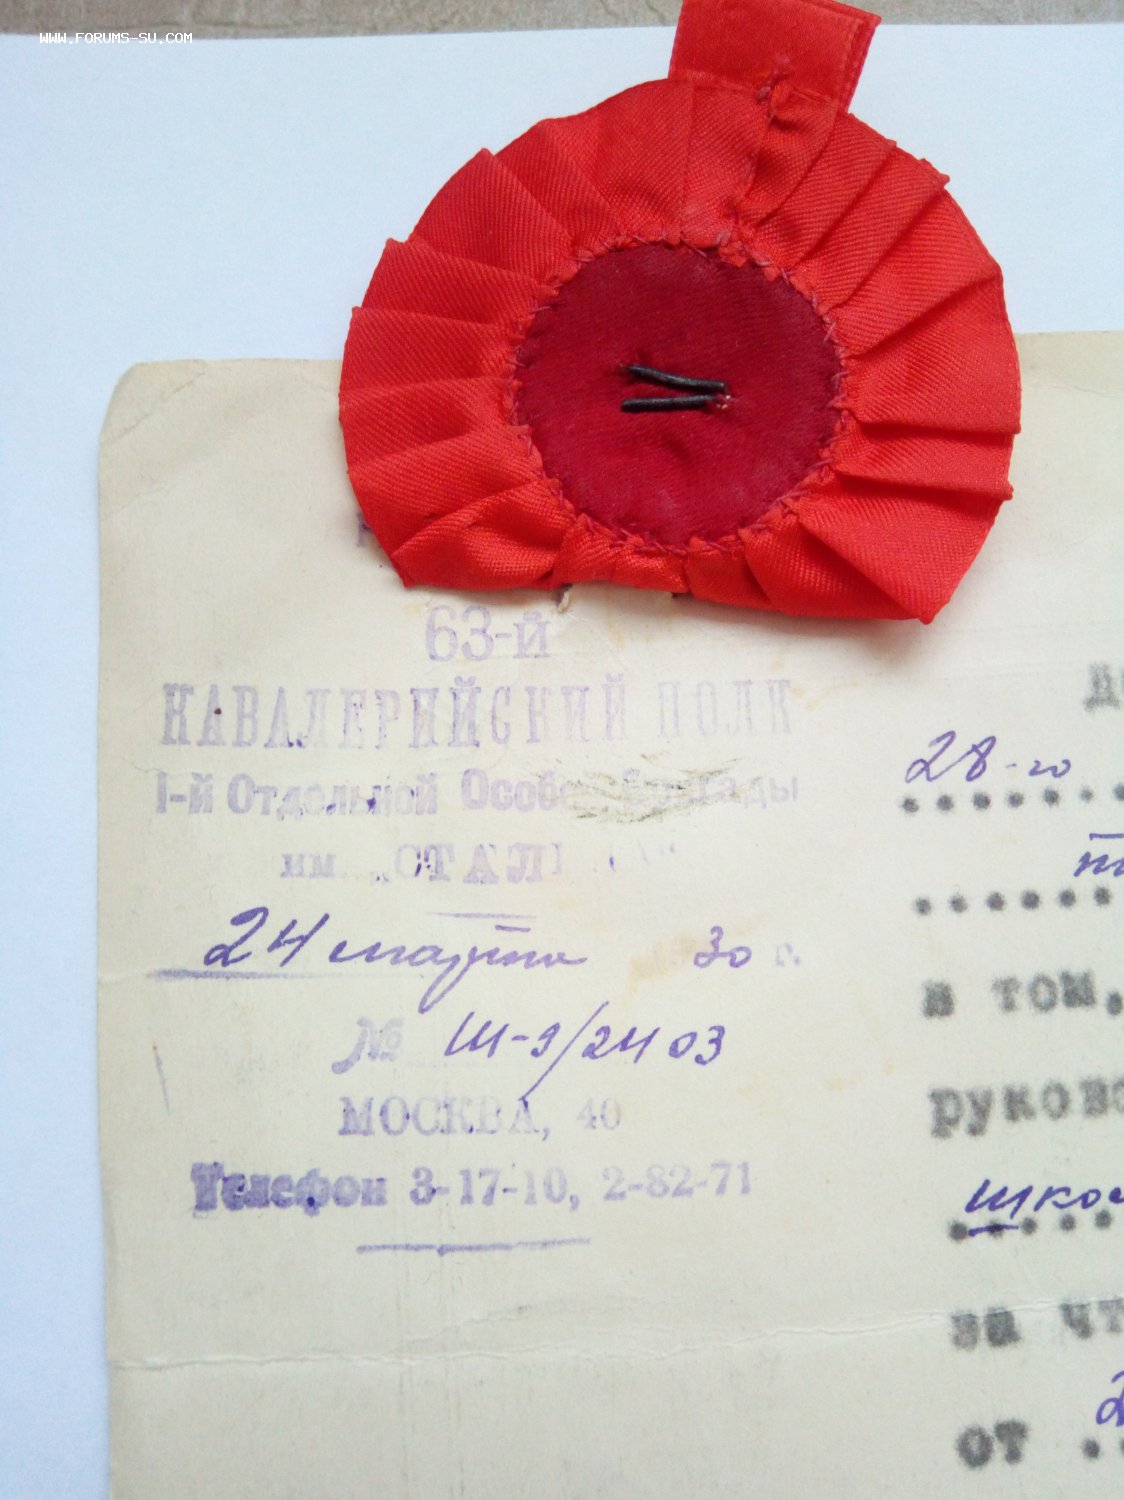 WWW.FORUMS-SU.COM
63-й
КАВАЛЕРИЙСКИЙ ПОЛК
1-й Отдельной Особой Бригады
им. „СТАЛИНА“
24 марта 30 г.
№ Ш-9/2403
МОСКВА, 40
Телефон 3-17-10, 2-82-71
28-го
в том,
руково
шко
за чт
от